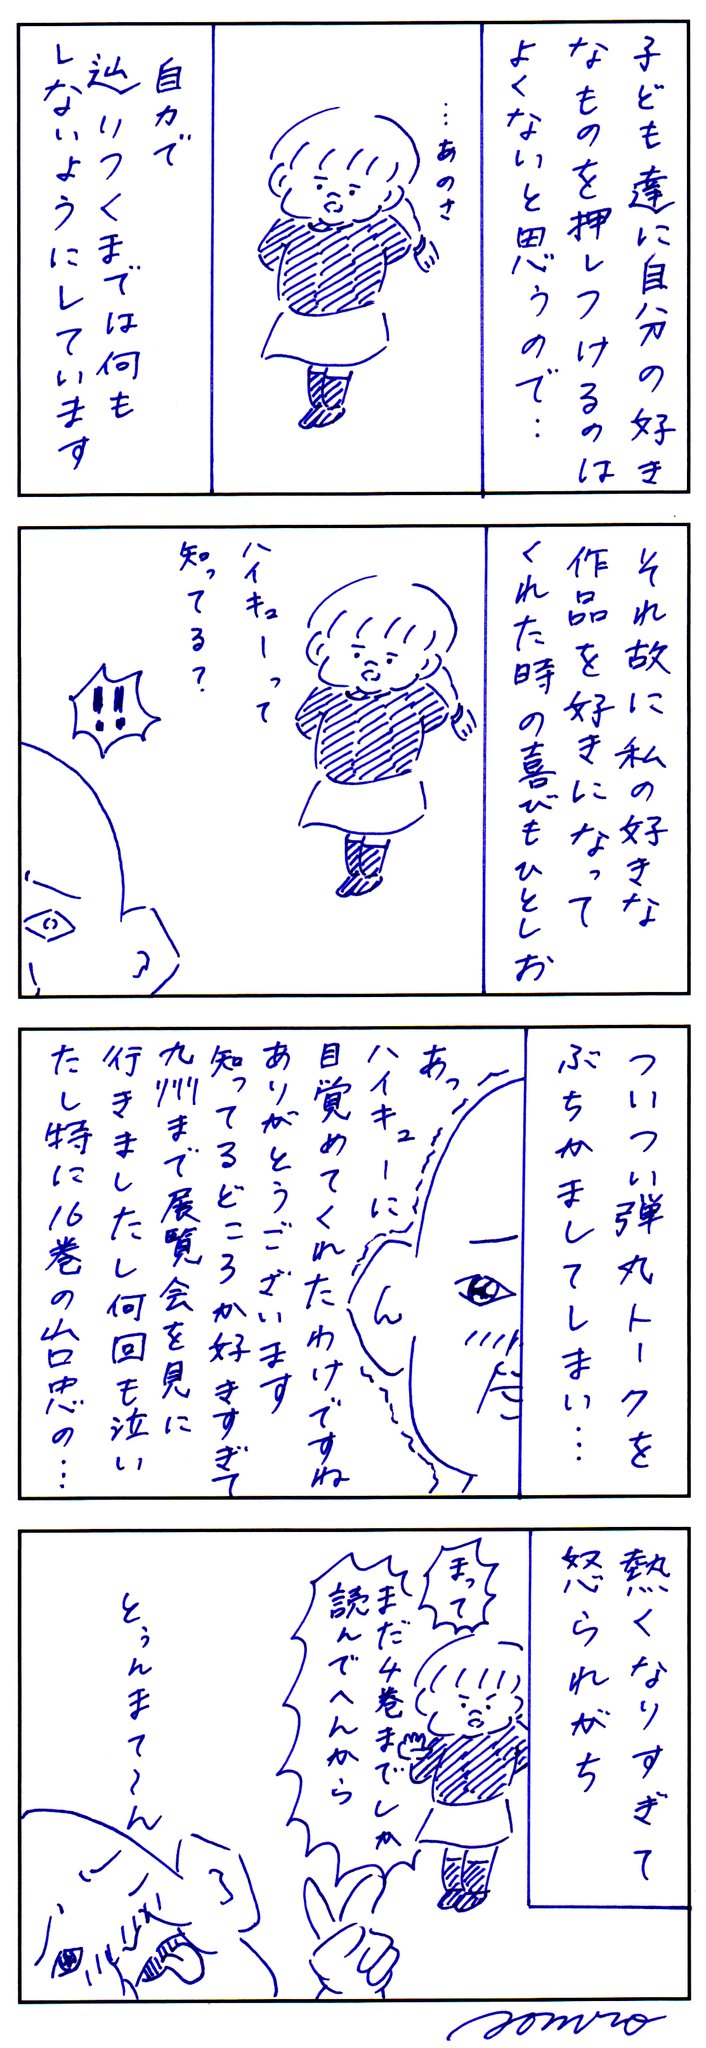 子ども達に自分の好き
なものを押しつけるのは
よくないと思うので…
…あのさ
自力で
辿りつくまでは何も
しないようにしています
それ故に私の好きな
作品を好きになって
くれた時の喜びもひとしお
ハイキューって
知ってる？
!!
ついつい弾丸トークを
ぶちかましてしまい…
あっ
ハイキューに
目覚めてくれたわけですね
ありがとうございます
知ってるどころか好きすぎて
九州まで展覧会を見に
行きましたし何回も泣い
たし特に16巻の山口忠の…
熱くなりすぎて
怒られがち
まって
まだ4巻までしか
読んでへんから
とぅんまて〜ん